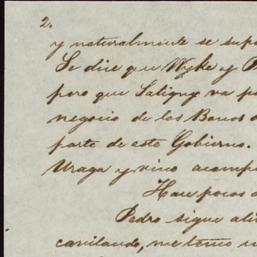 2.
y naturalmente se
Se dice que Wyke y
pero que Saligny va
negocio de los Bonos
parte de este Gobierno.
Uraga y vino
Hace pocos
Pedro sigue
cavilando, me temo